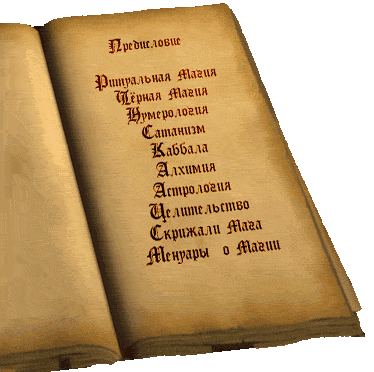 Предисловие
Ритуальная Магия
Чёрная Магия
Нумерология
Сатанизм
Каббала
Алхимия
Астрология
Целительство
Скрижали Мага
Менуары о Магии